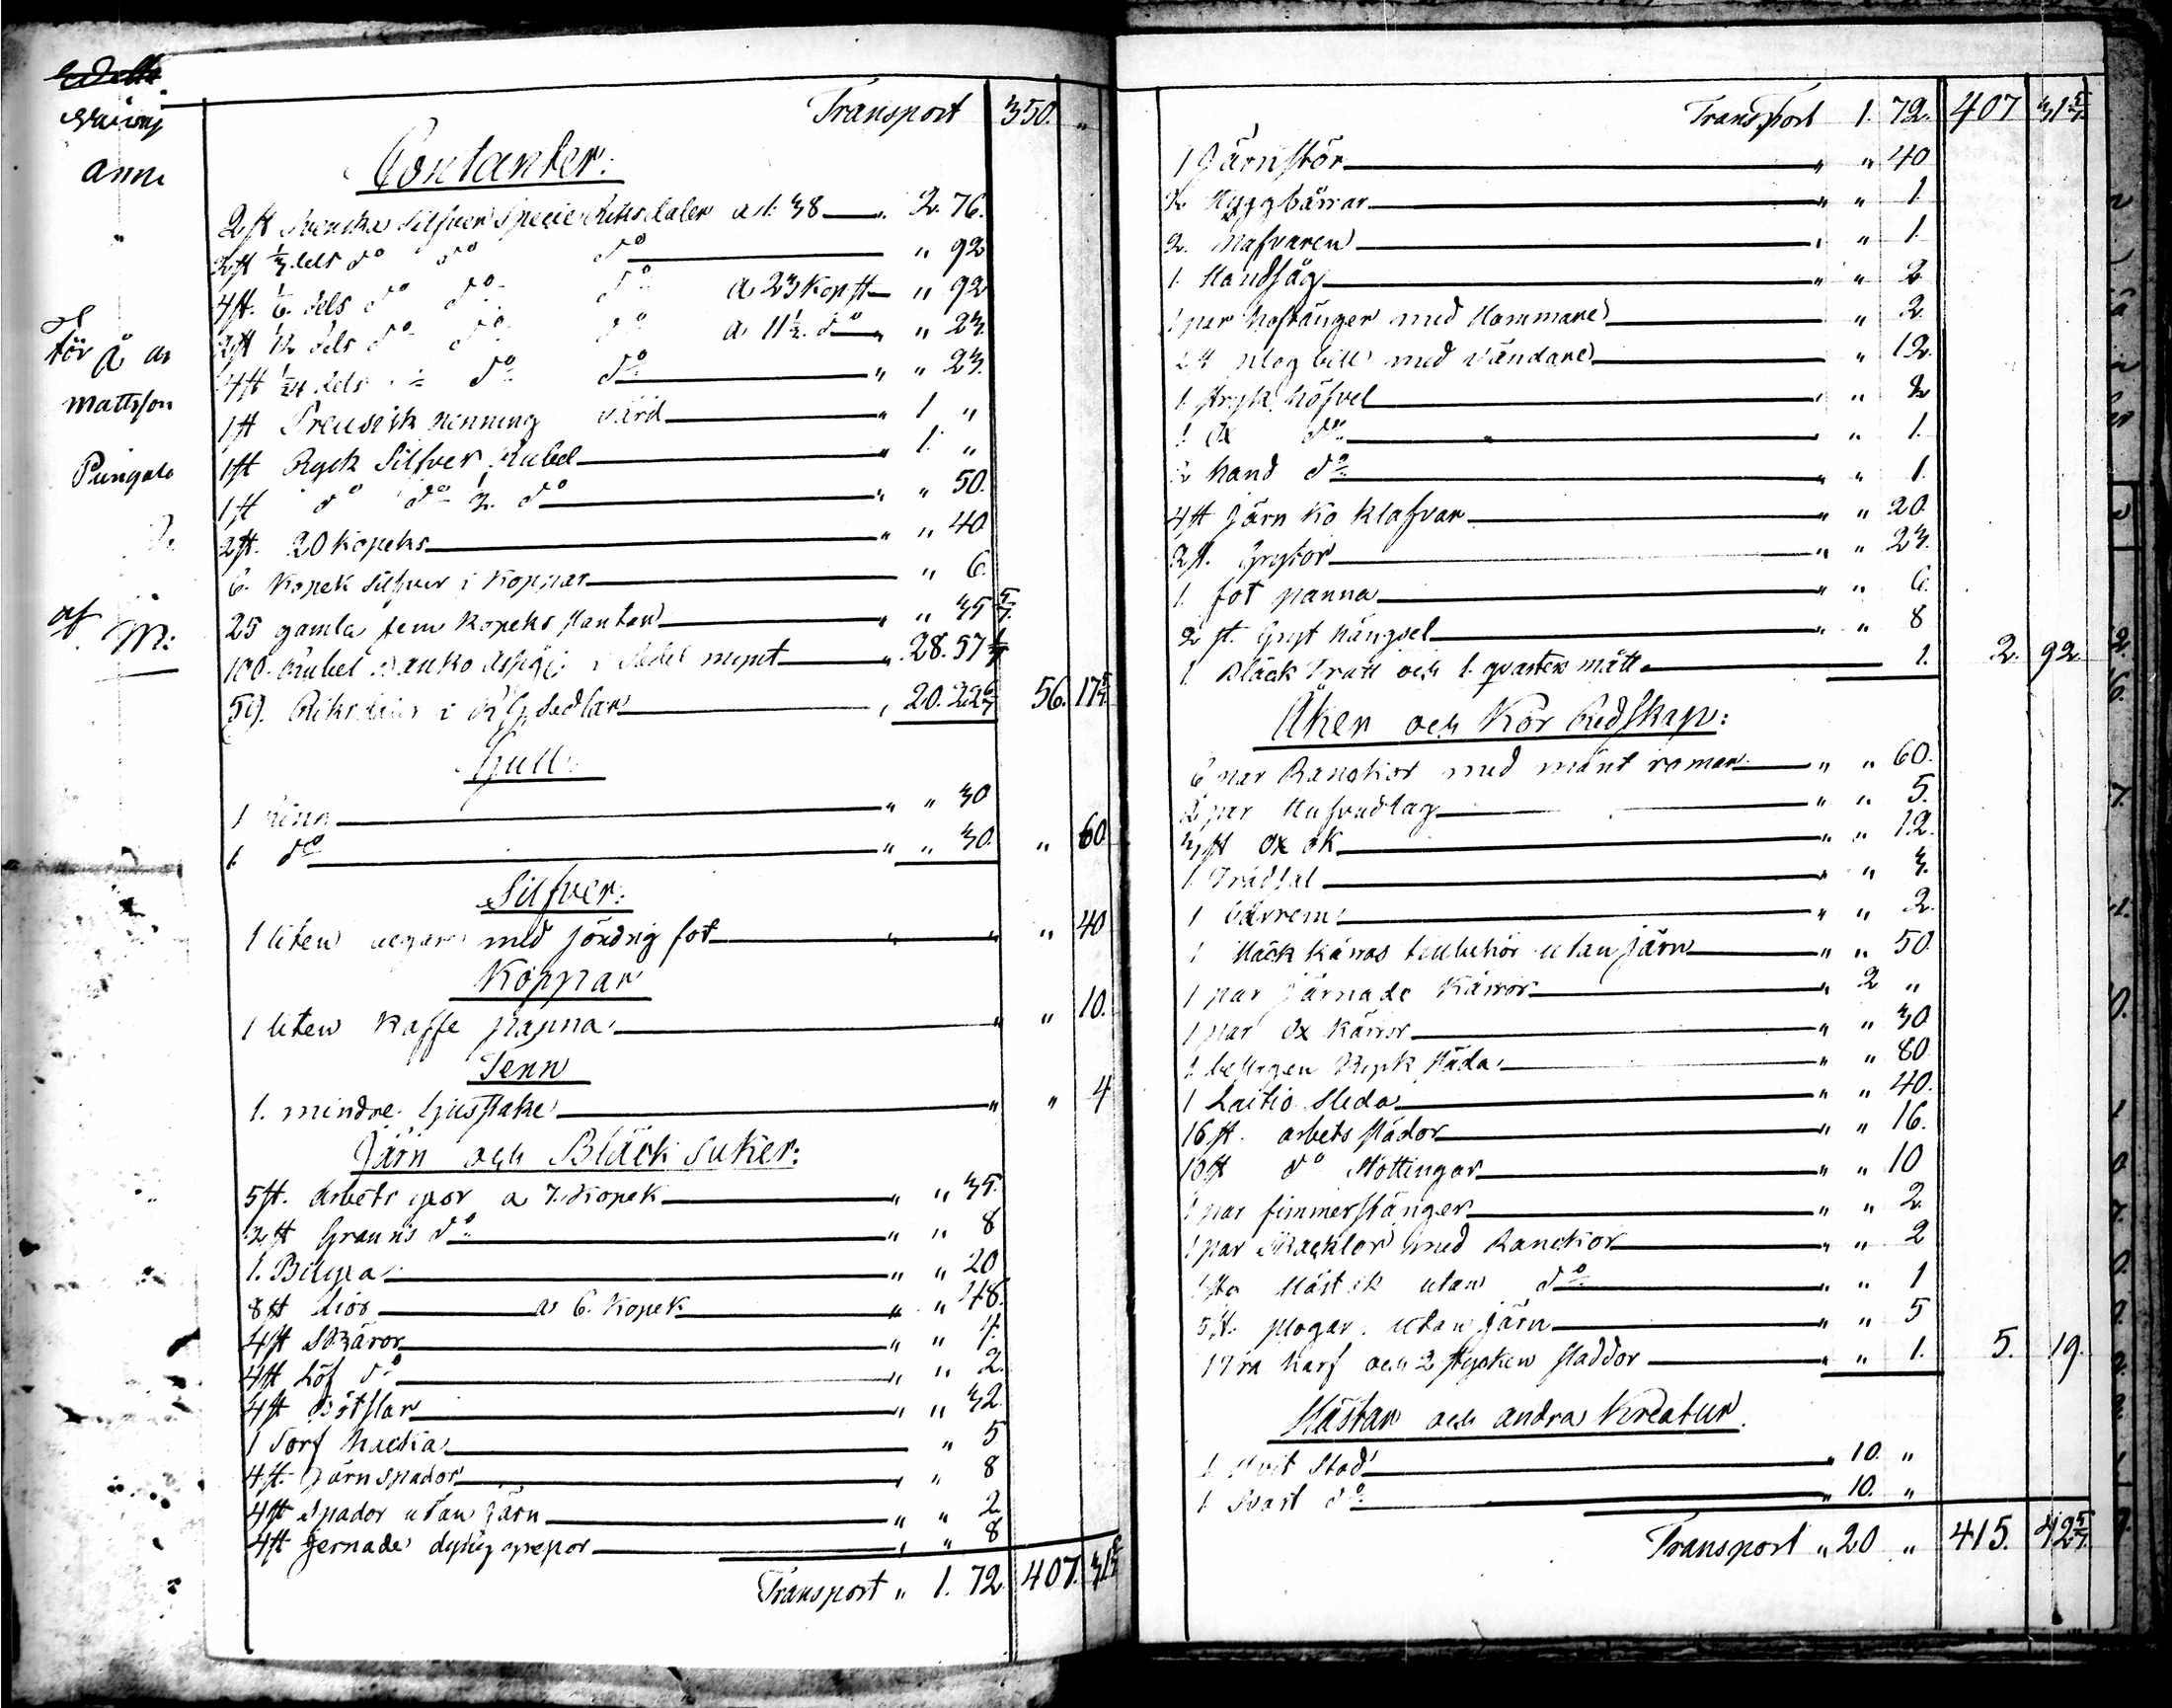 anne
för å
mattsson
af M:
Transport 350. "
Contanter:
2 st Svenska Silfver Specie Riksdaler a 1. 38 " 2. 76.
2 st 1/3 dels do do do " 92
4 st. 1/6 dels do do do a 23 Kop st " 92
2 st 1/12 dels do do do a 11 1/2 do " " 23
4 st 1/24 dels do do " " 23.
1 st Preusisk värd " 1 "
1 st Rysk Silfver Rubel " 1. "
1 st do do 1/2 do " " 50.
2 st. 20 Kopeks " " 40
6. Kopek Silfver i Koppar " 6.
25 gamla fem Kopeks slantar " " 35 5/7
100. Rubel Banko i Sedel mynt " 28. 57 1/7
59. Riksdaler i Sedlar " 20. 22 6/7 56. 17 5/7
Gull:
1 Ring " " 30
1 do " " 30. " 60
Silfver:
1 liten med fot " " " 40
Koppar
1 liten Kaffe panna " " 10.
Tenn
1. mindre ljusstake " " 4
Järn och Bläck saker:
5 st. Arbets yxor a 7. Kopek " " 35.
2 st do " " 8
1. Bilyxa " " 20
8 st lior a 6. Kopek " " 48.
4 st Skäror " " 4.
4 st Löf do " " 2.
4 st " " 32
1 Torf hacka " 5
4 st. Järnspador " " 8
4 st Spador utan Järn " " 2
4 st Jernade dyng grepar " " 8
Transport " 1. 72 407. 31 5/7
Transport 1. 72. 407 31 5/7
1 Järnstör " " 40
2. " " 1.
2. Nafvaren " " 1.
1. Handsåg " " 2
1 par hoftänger med Hammare " 2
2 st plog bill med vändare " 12
1. Stryk höfvel " " 2
1. Ox do " " 1.
2 hand do " " 1.
4 st Järn Ko Klafvar " " 20.
2 st. Grytor " " 23.
1. fot panna " " 6.
2 st. Gryt hängsel " " 8
1 Bläck Tratt och 1. qvarter mått 1. 2. 92.
Åker och Kör Redskap:
6 par Ranckor med " " 60.
2 par Hufvudlag " " 5.
3 st Ox ok " " 12.
1. " " 3.
1 bärrem " " 2.
1 Häck Kärras tillbehör utan Järn " " 50
1 par Järnade Kärror " 2 "
1 par Ox Kärror " " 30
1 beslagen släda " " 80
1 Laitio Släda " " 40.
16 st. arbets slädor " " 16.
10 st do Stöttingar " " 10
1 par fimmerstänger " " 2
1 par Skacklor med Ranckor " " 2
utan do " " 1
5 st. plogar utan Järn " " 5
harf och 2 stycken sladdor " " 1. 5. 19.
Hästar och andra Kreatur.
1. Hvit Stod " 10. "
1. Svart do " 10. "
Transport " 20 " 415. 42 5/7